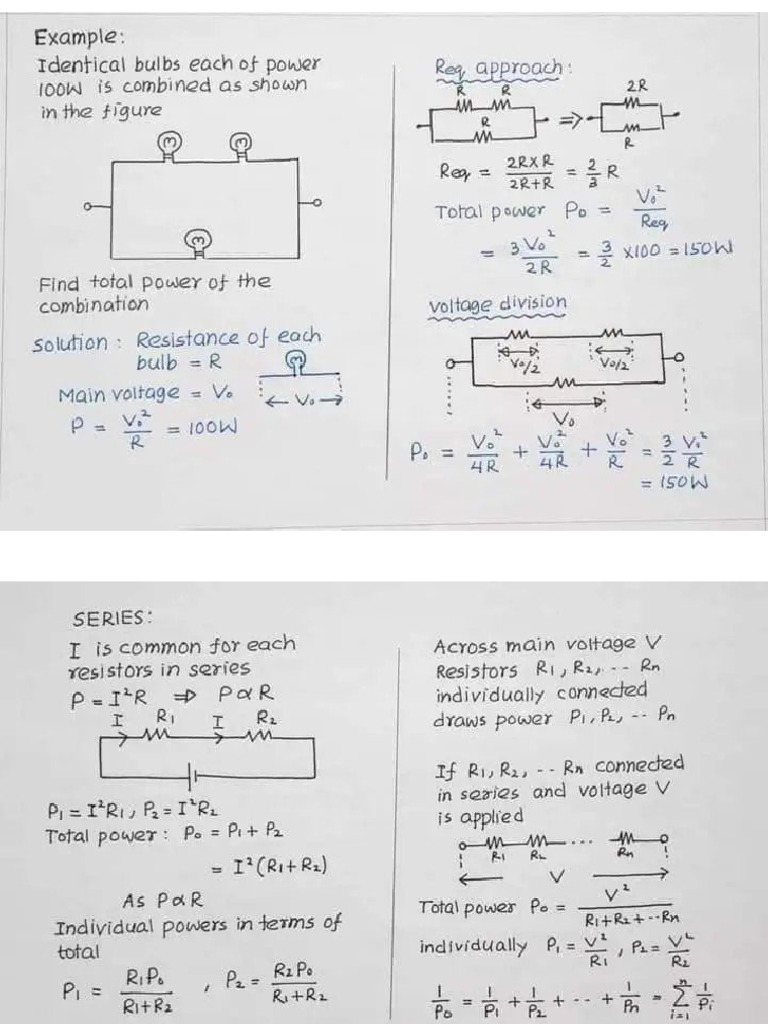 Example:
Identical bulbs each of power
100W is combined as shown
in the figure
Find total power of the
combination
Solution : Resistance of each
bulb = R
Main voltage = V₀
← V₀ →
P = V₀²/R = 100W
Req approach :
R R
R
⇒
2R
R
Req = 2R×R/2R+R = 2/3 R
Total power P₀ = V₀²/Req
= 3V₀²/2R = 3/2 ×100 = 150W
Voltage division
V₀/2 V₀/2
V₀
P₀ = V₀²/4R + V₀²/4R + V₀²/R = 3/2 V₀²/R
= 150W
SERIES:
I is common for each
resistors in series
P = I²R ⇒ P∝R
I R₁ I R₂
P₁ = I²R₁, P₂ = I²R₂
Total power : P₀ = P₁ + P₂
= I²(R₁+R₂)
As P∝R
Individual powers in terms of
total
P₁ = R₁P₀/R₁+R₂ , P₂ = R₂P₀/R₁+R₂
Across main voltage V
Resistors R₁, R₂, -- Rn
individually connected
draws power P₁, P₂, -- Pn
If R₁, R₂, -- Rn connected
in series and voltage V
is applied
R₁ R₂ ... Rn
← V →
Total power P₀ = V²/R₁+R₂+--Rn
individually P₁ = V²/R₁ , P₂ = V²/R₂
1/P₀ = 1/P₁ + 1/P₂ + -- + 1/Pn = Σⁿᵢ₌₁ 1/Pi